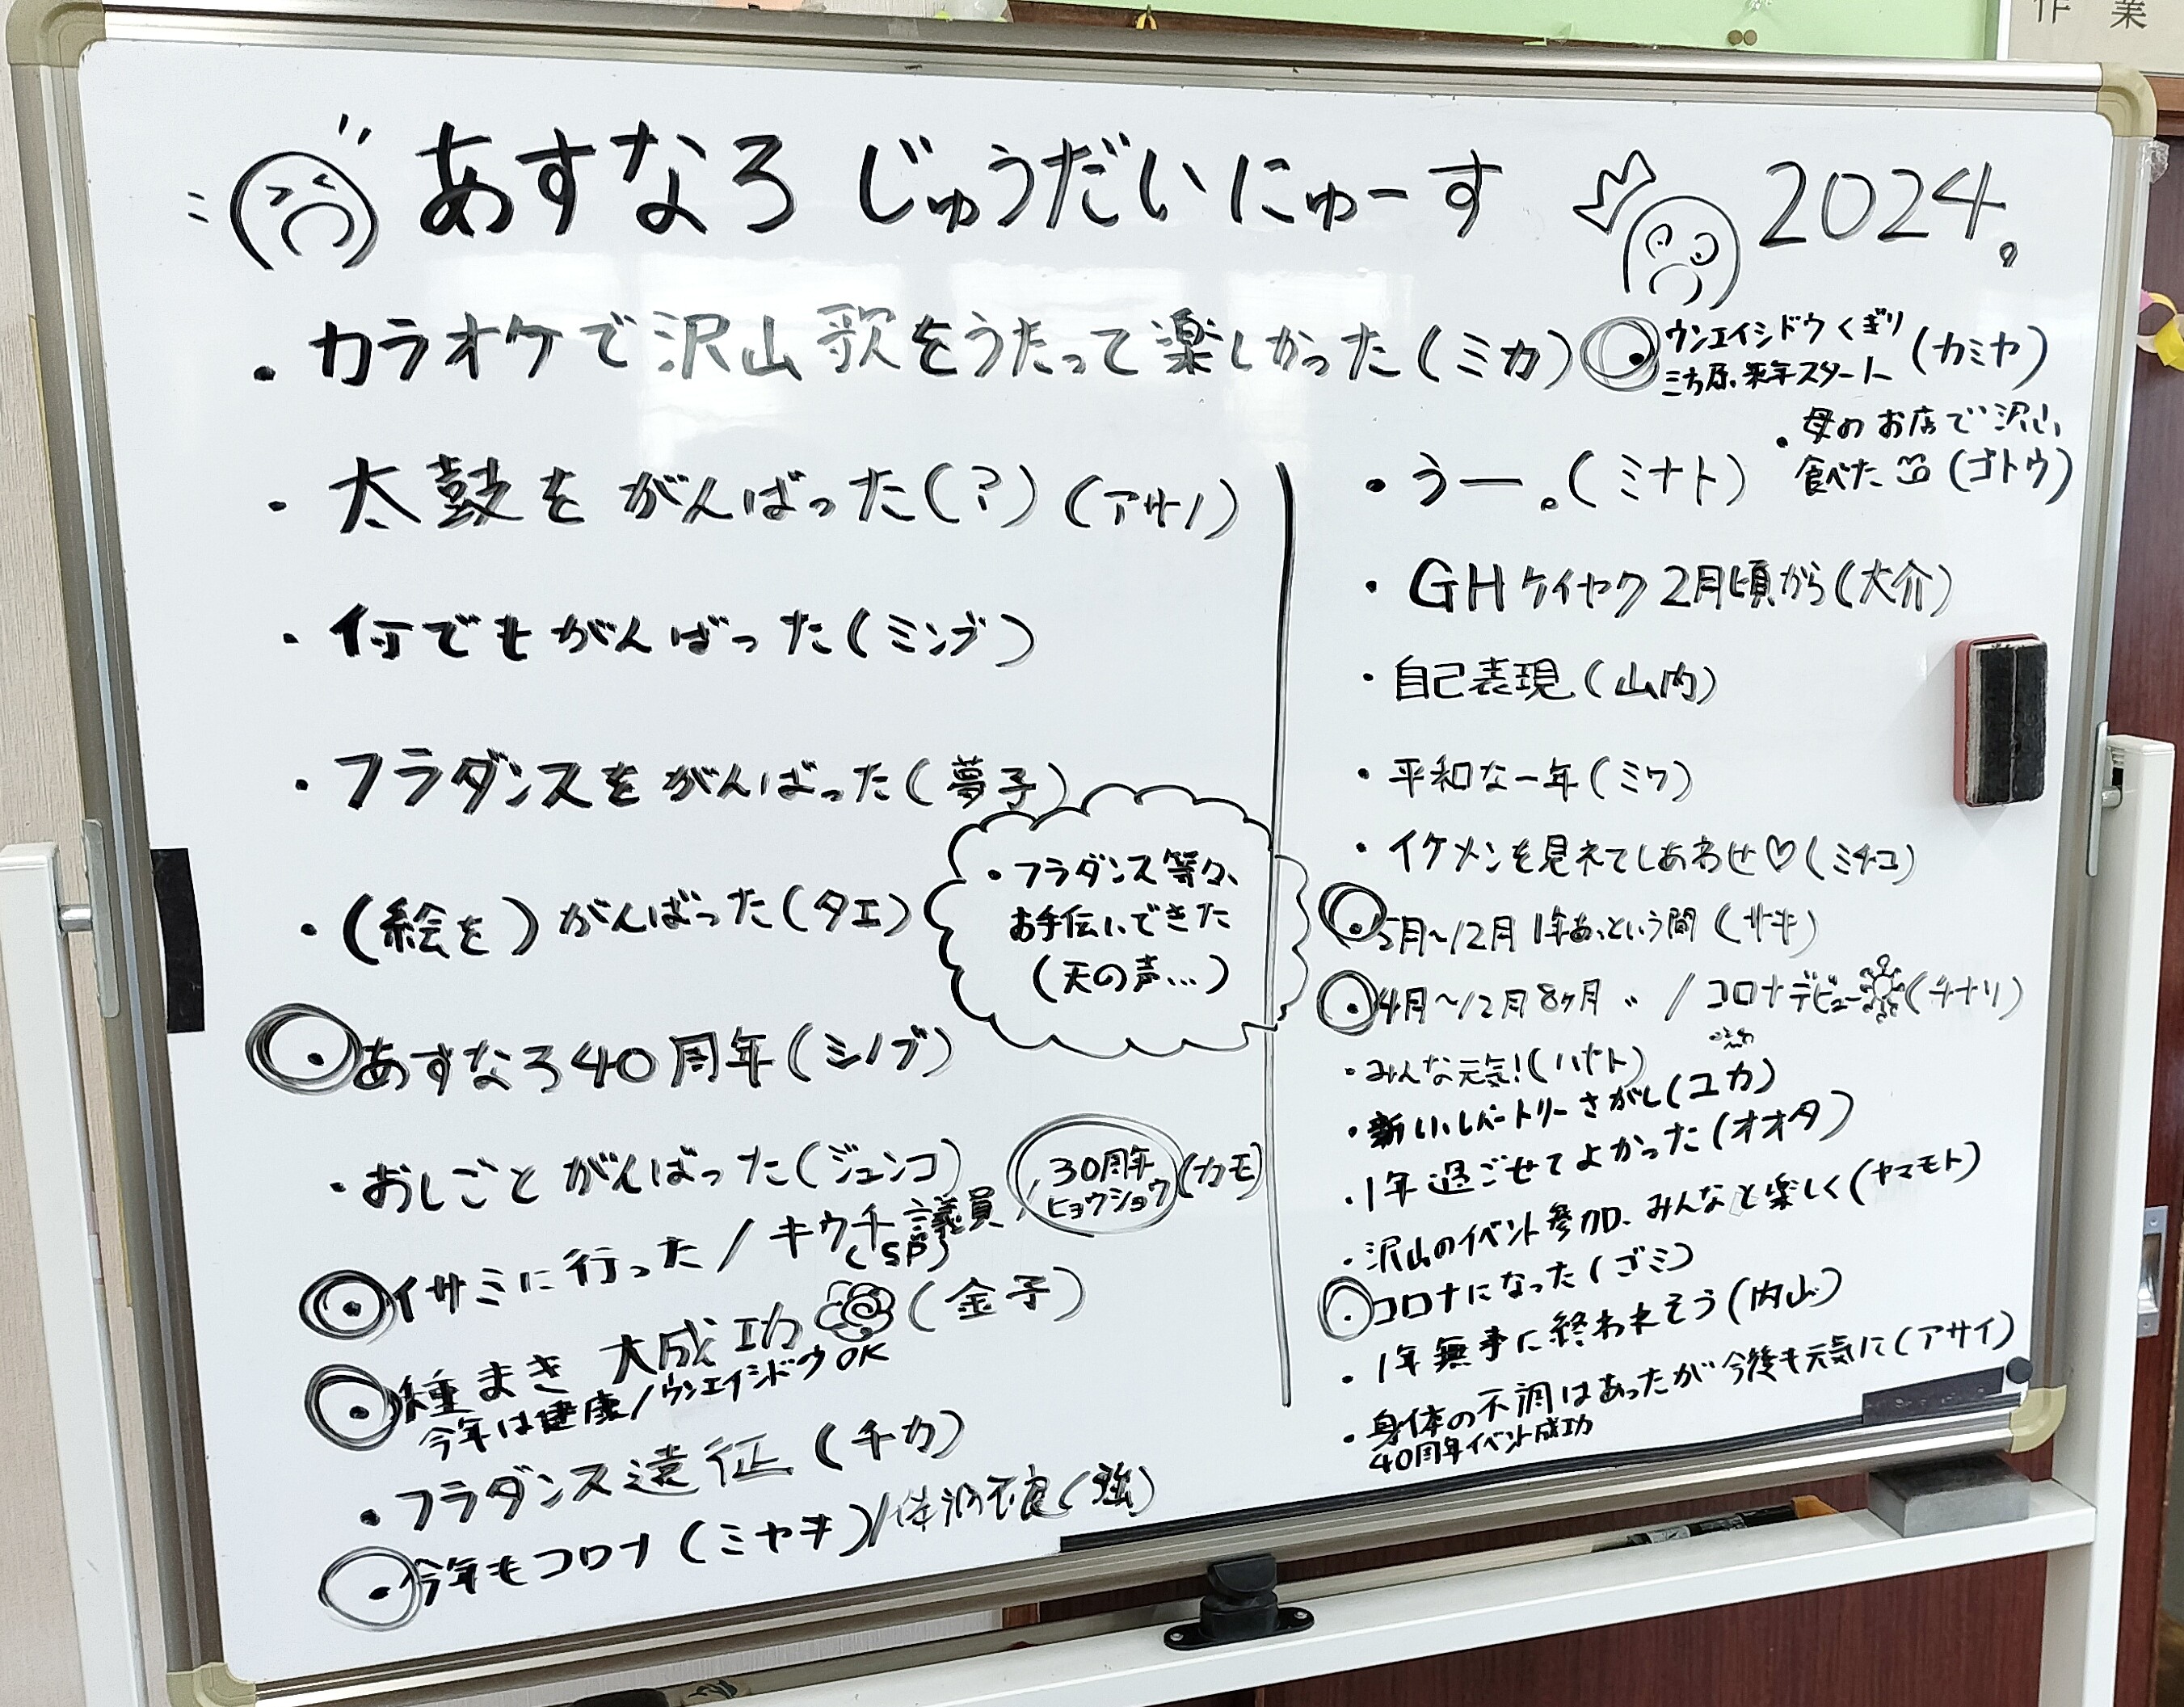 作業
あすなろ じゅうだいにゅーす 2024。
・カラオケで沢山歌をうたって楽しかった(ミカ)
・太鼓をがんばった(?)(アサノ)
・何でもがんばった(ミンブ)
・フラダンスをがんばった(夢子)
・(絵を)がんばった(タエ)
・フラダンス等々、
お手伝いできた
(天の声…)
・あすなろ40周年(シノブ)
・おしごとがんばった(ジュンコ)
・イサミに行った/キウチ議員/30周年
ヒョウショウ(カモ)
(SP)
・種まき 大成功(金子)
今年は健康/ウンエイシドウOK
・フラダンス遠征(チカ)
・今年もコロナ(ミヤキ)/体調不良(強)
・ウンエイシドウくぎり
三方原、来年スタート(カミヤ)
・母のお店で沢山
食べた(ゴトウ)
・うー。(ミナト)
・GHケイヤク2月頃から(大介)
・自己表現(山内)
・平和な一年(ミワ)
・イケメンを見れてしあわせ♡(ミチコ)
・5月~12月 1年あっという間(サキ)
・4月~12月8ヶ月 〃 /コロナデビュー(チナリ)
・みんな元気!(ハヤト)
・新しいレパートリーさがし(ユカ)
・1年過ごせてよかった(オオタ)
・沢山のイベント参加、みんなと楽しく(ヤマモト)
・コロナになった(ゴミ)
・1年無事に終われそう(内山)
・身体の不調はあったが今後も元気に(アサイ)
40周年イベント成功